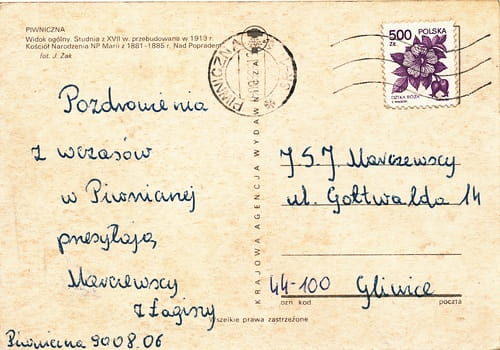 PIWNICZNA
Widok ogólny. Studnia z XVII w. przebudowana w 1913 r.
Kościół Narodzenia NP Marii z 1881-1885 r. Nad Popradem
fot. J. Żak
500
ZŁ
POLSKA
DZIKA RÓŻA
PIWNICZNA
Pozdrowienia
z wczasów
w Piwnicznej
przesyłają
Marczewscy
z Łagiszy
Piwniczna 90 08.06
KRAJOWA AGENCJA WYDAWNICZA
J. S. J. Marczewscy
ul. Gottwalda 14
44-100 Gliwice
ozn kod
poczta
Wszelkie prawa zastrzeżone